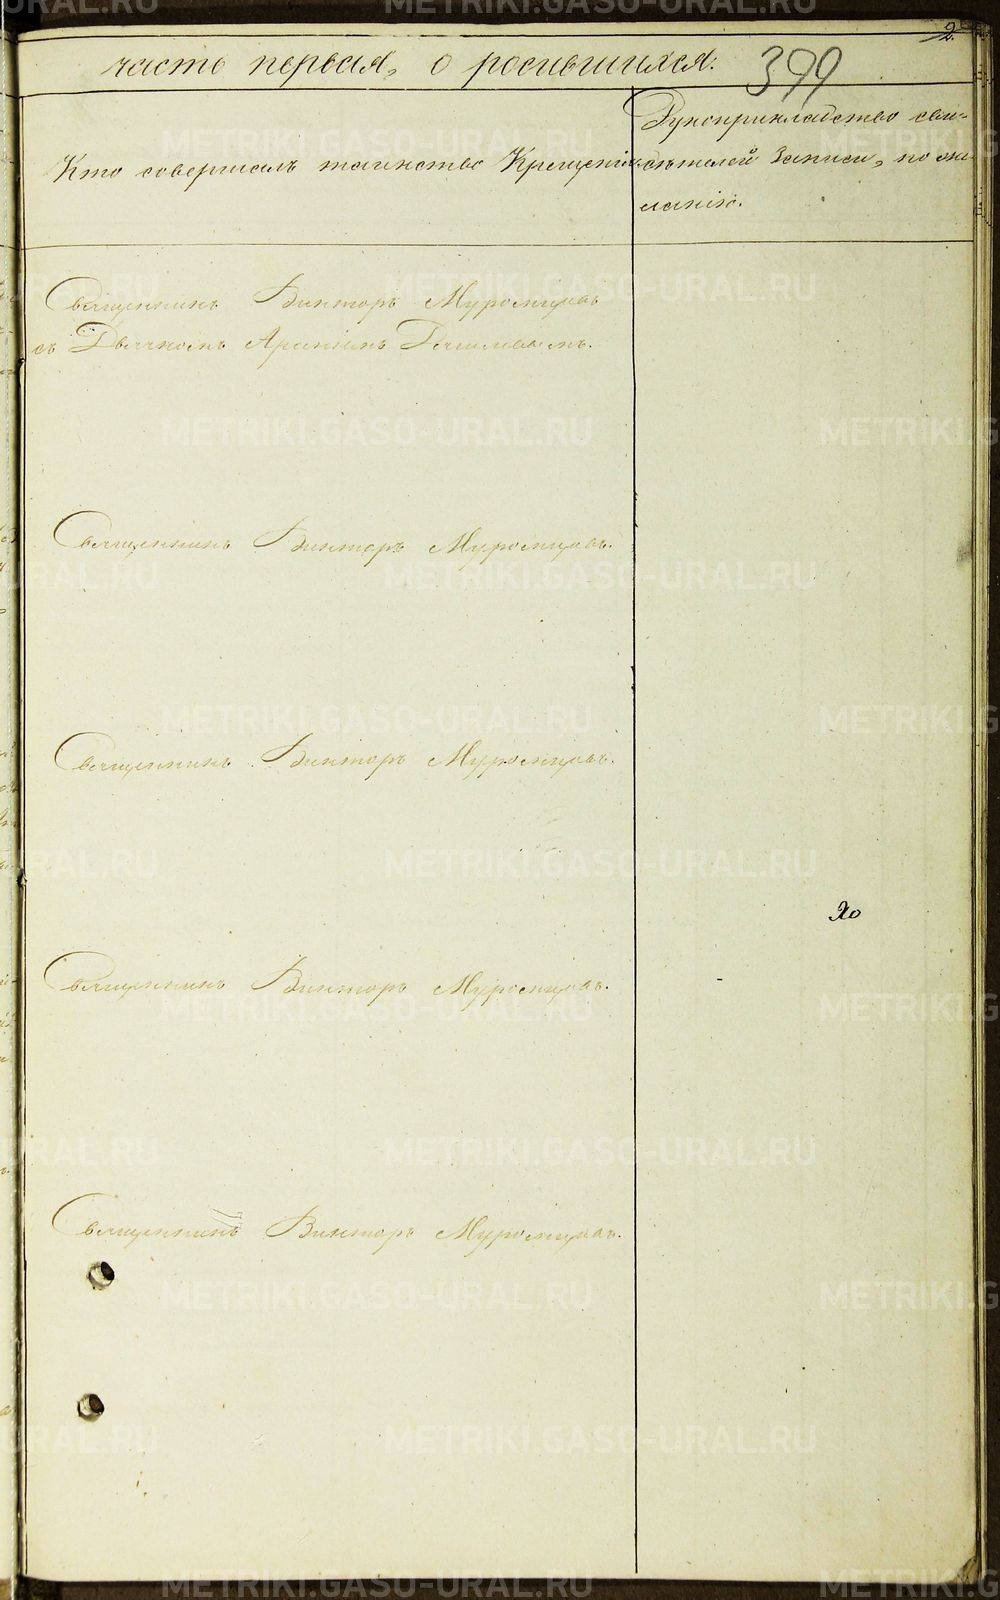 2.
часть первая, о родившихся.
399
Кто совершалъ таинство Крещенія
Рукоприкладство сви-
дѣтелей записи, по же-
ланію.
Священникъ Викторъ Муромцовъ
съ Дьячкомъ
Священникъ Викторъ Муромцовъ.
Священникъ Викторъ Муромцовъ.
Священникъ Викторъ Муромцовъ.
Священникъ Викторъ Муромцовъ.
METRIKI.GASO-URAL.RU